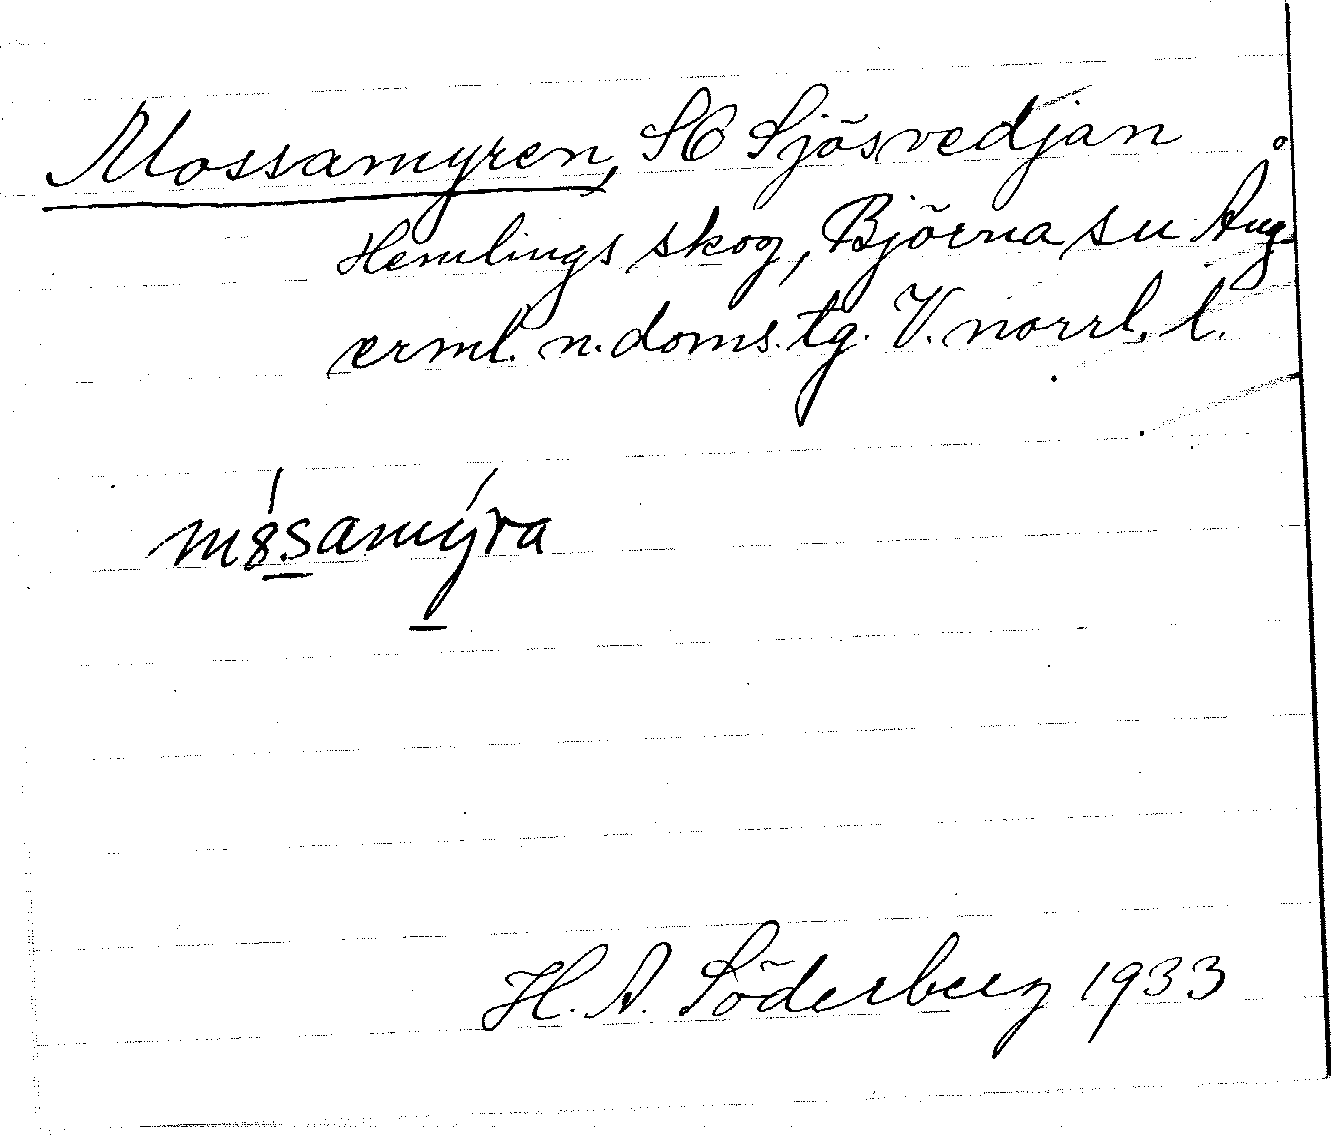 Mossamyren, SO Sjösvedjan
Hemlings skog, Björna sn Ång-
erml. n. doms. tg. V. norrl. l.
mósamýra
H. A. Söderberg 1933